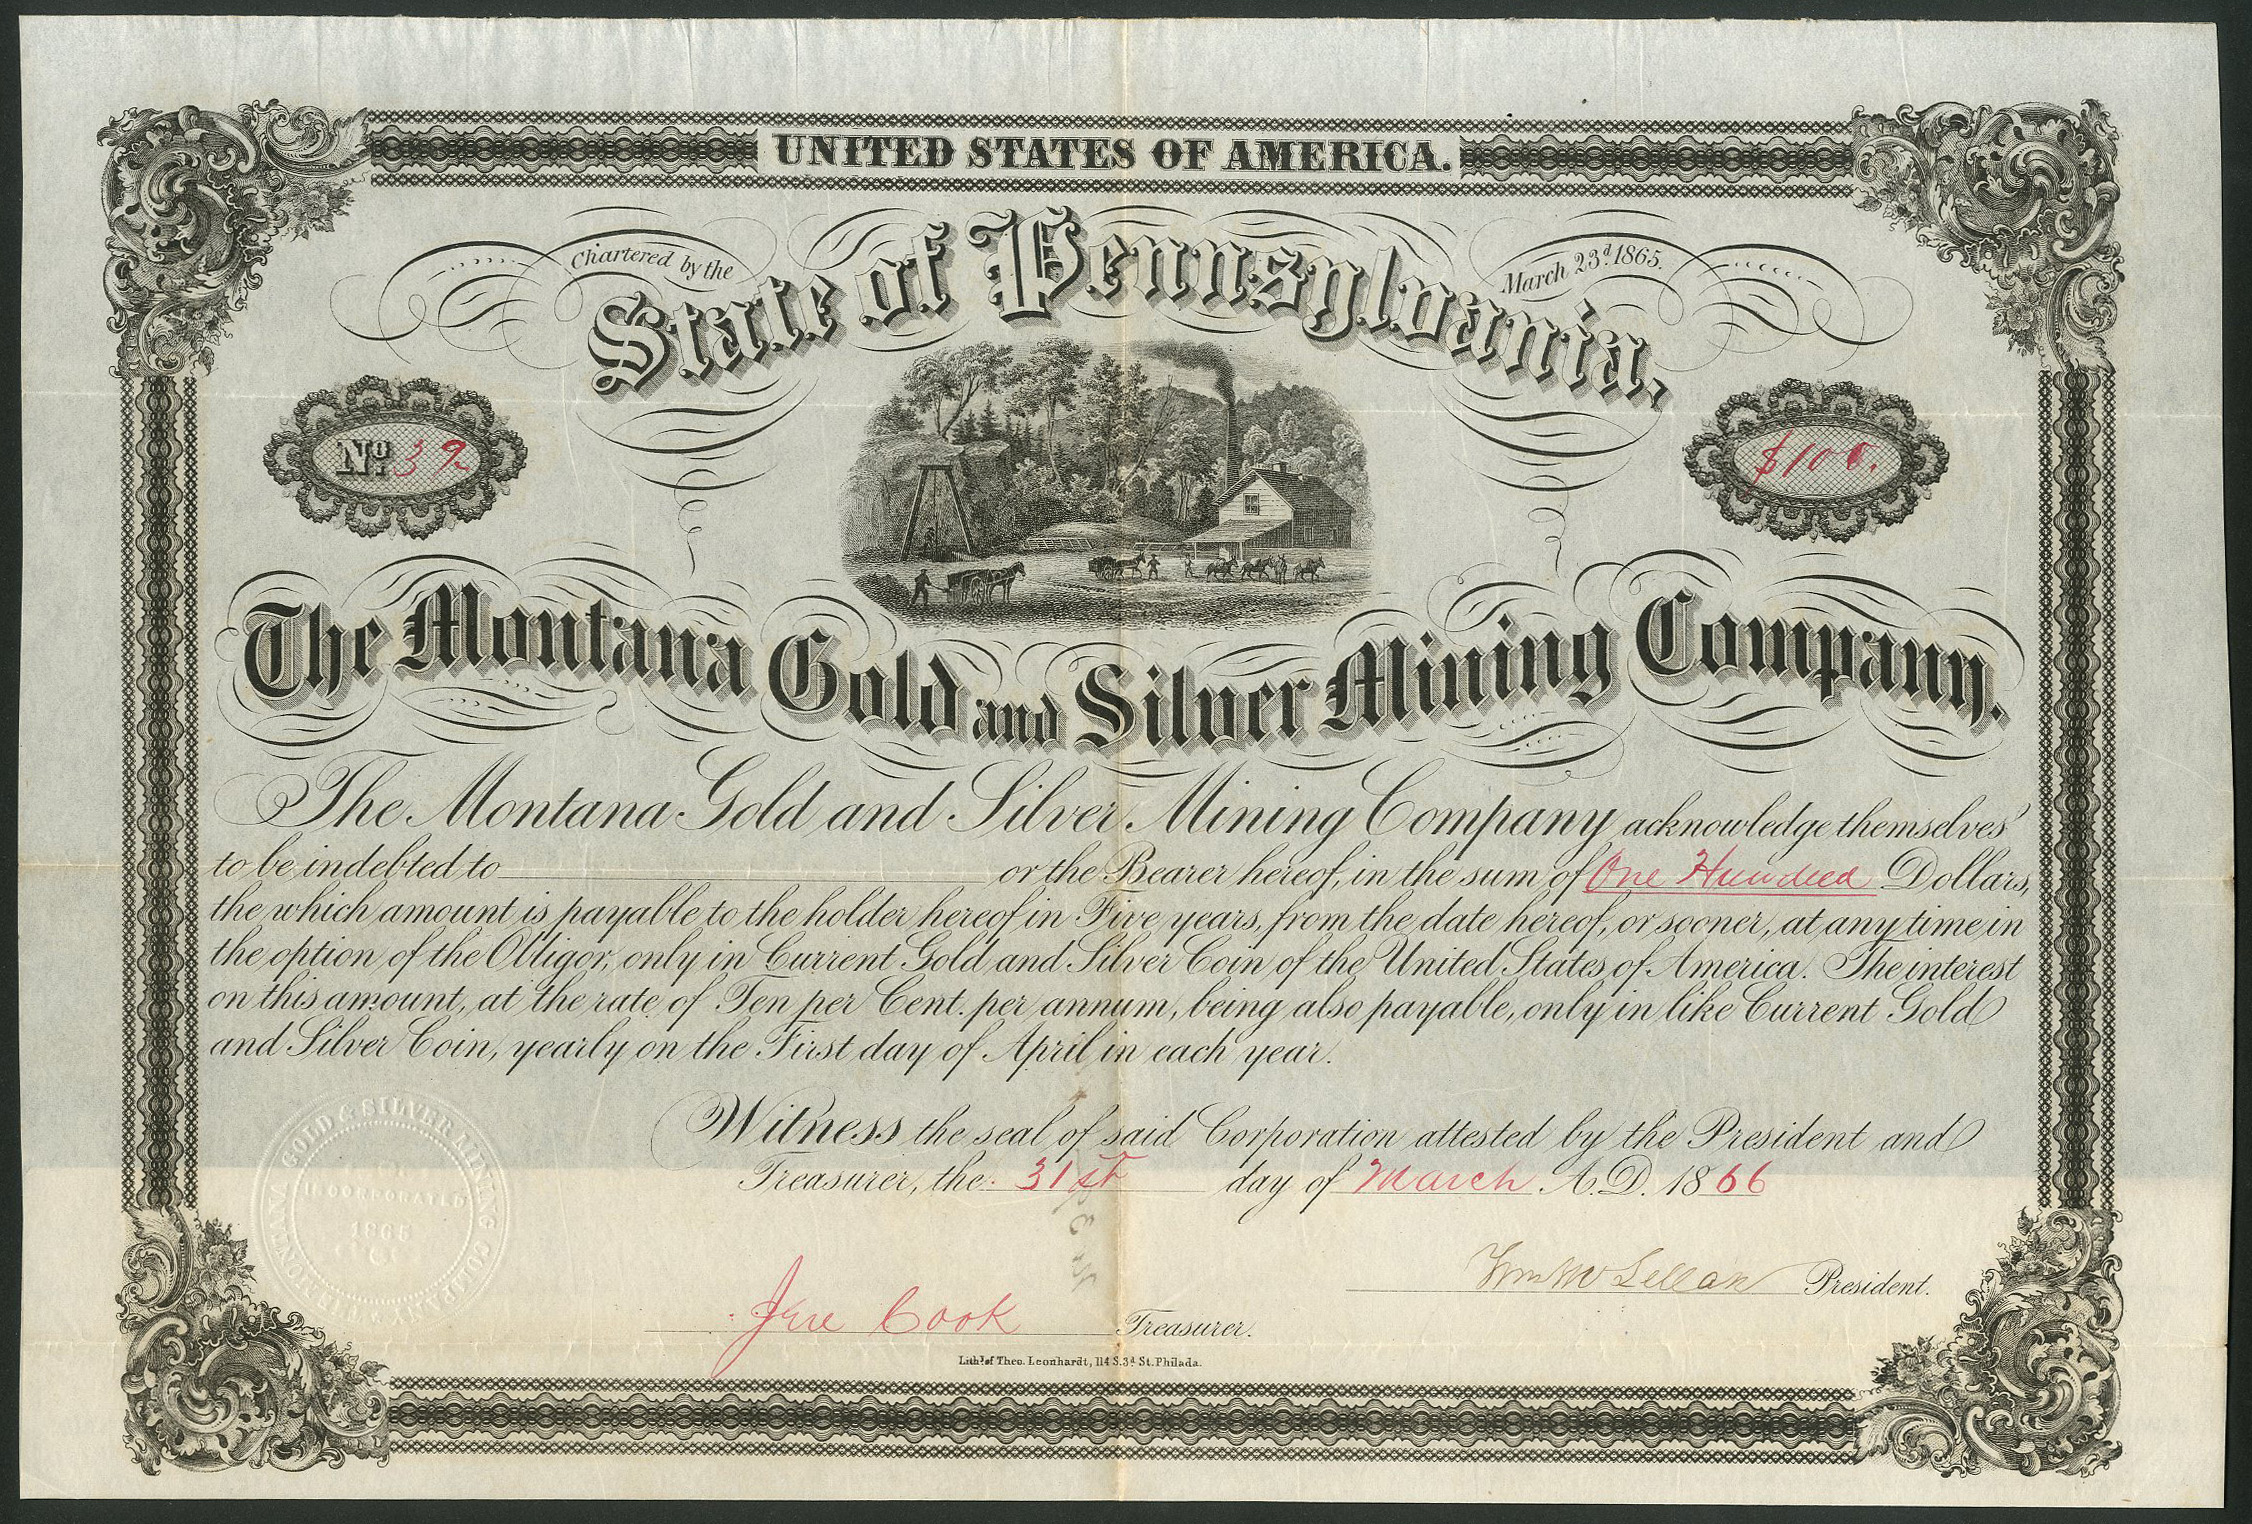 UNITED STATES OF AMERICA.
Chartered by the
March 23d. 1865.
State of Pennsylvania,
No. 39
$100.
The Montana Gold and Silver Mining Company.
The Montana Gold and Silver Mining Company acknowledge themselves
to be indebted to or the Bearer hereof, in the sum of One Hundred Dollars,
the which amount is payable to the holder hereof in Five years, from the date hereof, or sooner, at any time in
the option of the Obligor, only in Current Gold and Silver Coin of the United States of America. The interest
on this amount, at the rate of Ten per Cent. per annum, being also payable, only in like Current Gold
and Silver Coin, yearly on the First day of April in each year.
Witness the seal of said Corporation attested by the President and
Treasurer, the 31st day of March A.D. 1866
THE MONTANA GOLD & SILVER MINING COMPANY
INCORPORATED
1865
Wm McLellan President.
Jere Cook Treasurer.
Lith. of Theo. Leonhardt, 114 S. 3d St. Philada.